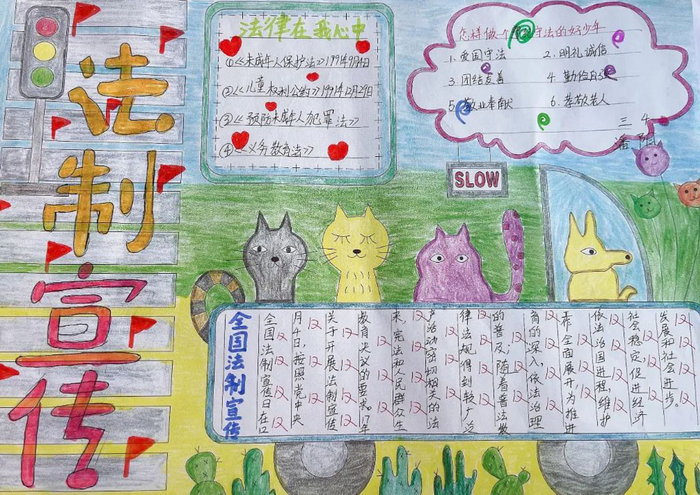 法制宣传
法律在我心中
①《未成年人保护法》1991年9月4日
②《儿童权利公约》1991年12月29日
③《预防未成年人犯罪法》
④《义务教育法》
怎样做个守法的好少年
1.爱国守法 2.明礼诚信
3团结友善 4 勤俭自强
5 敬业奉献 6.孝敬老人
三 4
SLOW
全国法制宣传
全国法制宣传日在12
月4日,按照党中央
关于开展法制宣传
教育决议的要求,
来,宪法和人民群众生
产活动密切相关的法
律法规得到较广泛
的普及,随着普法教
育的深入,依法治理
工作全面展开,为推进
依法治国进程,维护
社会稳定,促进经济
发展和社会进步。